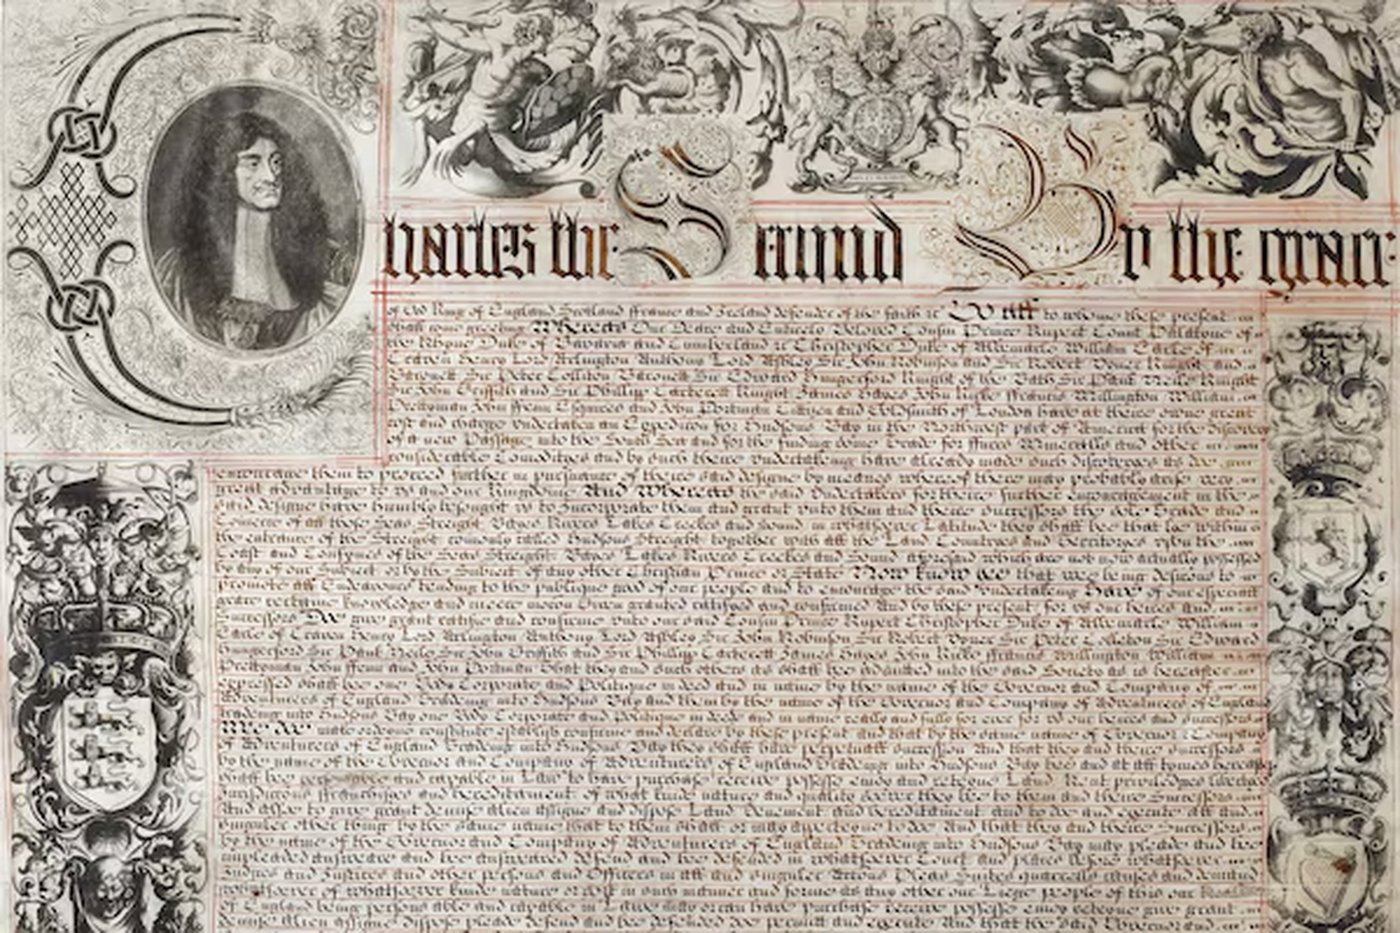 Charles the Second By the grace
of God King of England Scotland ffrance and Ireland defender of the faith &c To all to whome these present
shall come greeting Whereas Our Deare and Entirely Beloved Cousin Prince Rupert Count Palatyne of
the Rhyne Duke of Bavaria and Cumberland &c Christopher Duke of Albemarle William Earle of
Craven Henry Lord Arlington Anthony Lord Ashley Sir John Robinson and Sir Robert Vyner Knight and
Baronett Sir Peter Colliton Baronett Sir Edward Hungerford Knight of the Bath Sir Paul Neile Knight
Sir John Griffith and Sir Phillipp Carterett Knight James Hayes John Kirke ffrancis Millington William
Prettyman John ffenn Esquires and John Portman Cittizen and Goldsmith of London have at theire owne great
cost and charge undertaken an Expedicion for Hudsons Bay in the Northwest part of America for the discovery
of a new Passage into the South Sea and for the finding some Trade for ffurrs Mineralls and other
considerable Comodityes and by such theire undertakeing have already made such discoveryes as doe
encourage them to proceed further in pursuance of theire said designe by meanes whereof there may probably arise very
great advantage to us and our Kingdome And Whereas the said Undertakers for theire further encouragement in the
said designe have humbly besought us to Incorporate them and grant unto them and theire successors the sole Trade and
Comerce of all those Seas Streight Bayes Rivers Lakes Creekes and Sound in whatsoever Latitude they shall bee that lye within
the entrance of the Streight comonly called Hudsons Streight together with all the Land Countryes and Territoryes upon the
Coast and Confynes of the Seas Streight Bayes Lakes Rivers Creekes and Sound aforesaid which are not now actually possessed
by any of our Subject or by the Subject of any other Christian Prince or State Now know yee that wee being desirous to
promote all Endeavours tending to the publique good of our people and to encourage the said undertakeing Have of our especiall
grace certayne knowledge and meere mocion Given granted ratifyed and confirmed And by these present for us our heires and
successors Doe give grant ratifie and confirme unto our said Cousin Prince Rupert Christopher Duke of Albemarle William
Earle of Craven Henry Lord Arlington Anthony Lord Ashley Sir John Robinson Sir Robert Vyner Sir Peter Colleton Sir Edward
Hungerford Sir Paul Neile Sir John Griffith and Sir Phillipp Carterett James Hayes John Kirke ffrancis Millington William
Prettyman John ffenn and John Portman That they and such others as shall bee admitted into the said Society as is hereafter
expressed shall bee one Body Corporate and Politique in deed and in name by the name of the Governor and Company of
Adventurers of England Tradeing into Hudsons Bay and them by the name of the Governor and Company of Adventurers of England
tradeing into Hudsons Bay one Body Corporate and Politique in deed and in name really and fully for ever for us our heires and successors
Wee Doe make ordeyne constitute establish confirme and declare by these present and that by the same name of Governor & Company
of Adventurers of England Tradeing into Hudsons Bay they shall have perpetuall succession And that they and theire successors
by the name of the Governor and Company of Adventurers of England Tradeing into Hudsons Bay bee and at all tymes hereafter
shall bee personable and capable in Law to have purchase receive possesse enjoy and reteyne Land Rent priviledges libertyes
Jurisdictions ffranchises and hereditament of what kinde nature and quality soever they bee to them and theire Successors
And alsoe to give grant demise alien assigne and dispose Land Tenement and hereditament and to doe and execute all and
singuler other things by the same name that to them shall or may apperteyne to doe And that they and theire Successors
by the name of the Governor and Company of Adventurers of England Tradeing into Hudsons Bay may pleade and bee
impleaded answeare and bee answeared defend and bee defended in whatsoever Court and places before whatsoever
Judges and Justices and other persons and Officers in all and singuler Actions Pleas Suites quarrells causes and demand
whatsoever of whatsoever kinde nature or sort in such manner and forme as any other our Liege people of this our Realme
of England being persons able and capable in Lawe may or can have purchase receive possesse enjoy reteyne give grant
demise alien assigne dispose pleade defend and bee defended doe permitt and execute And that the said Governor and